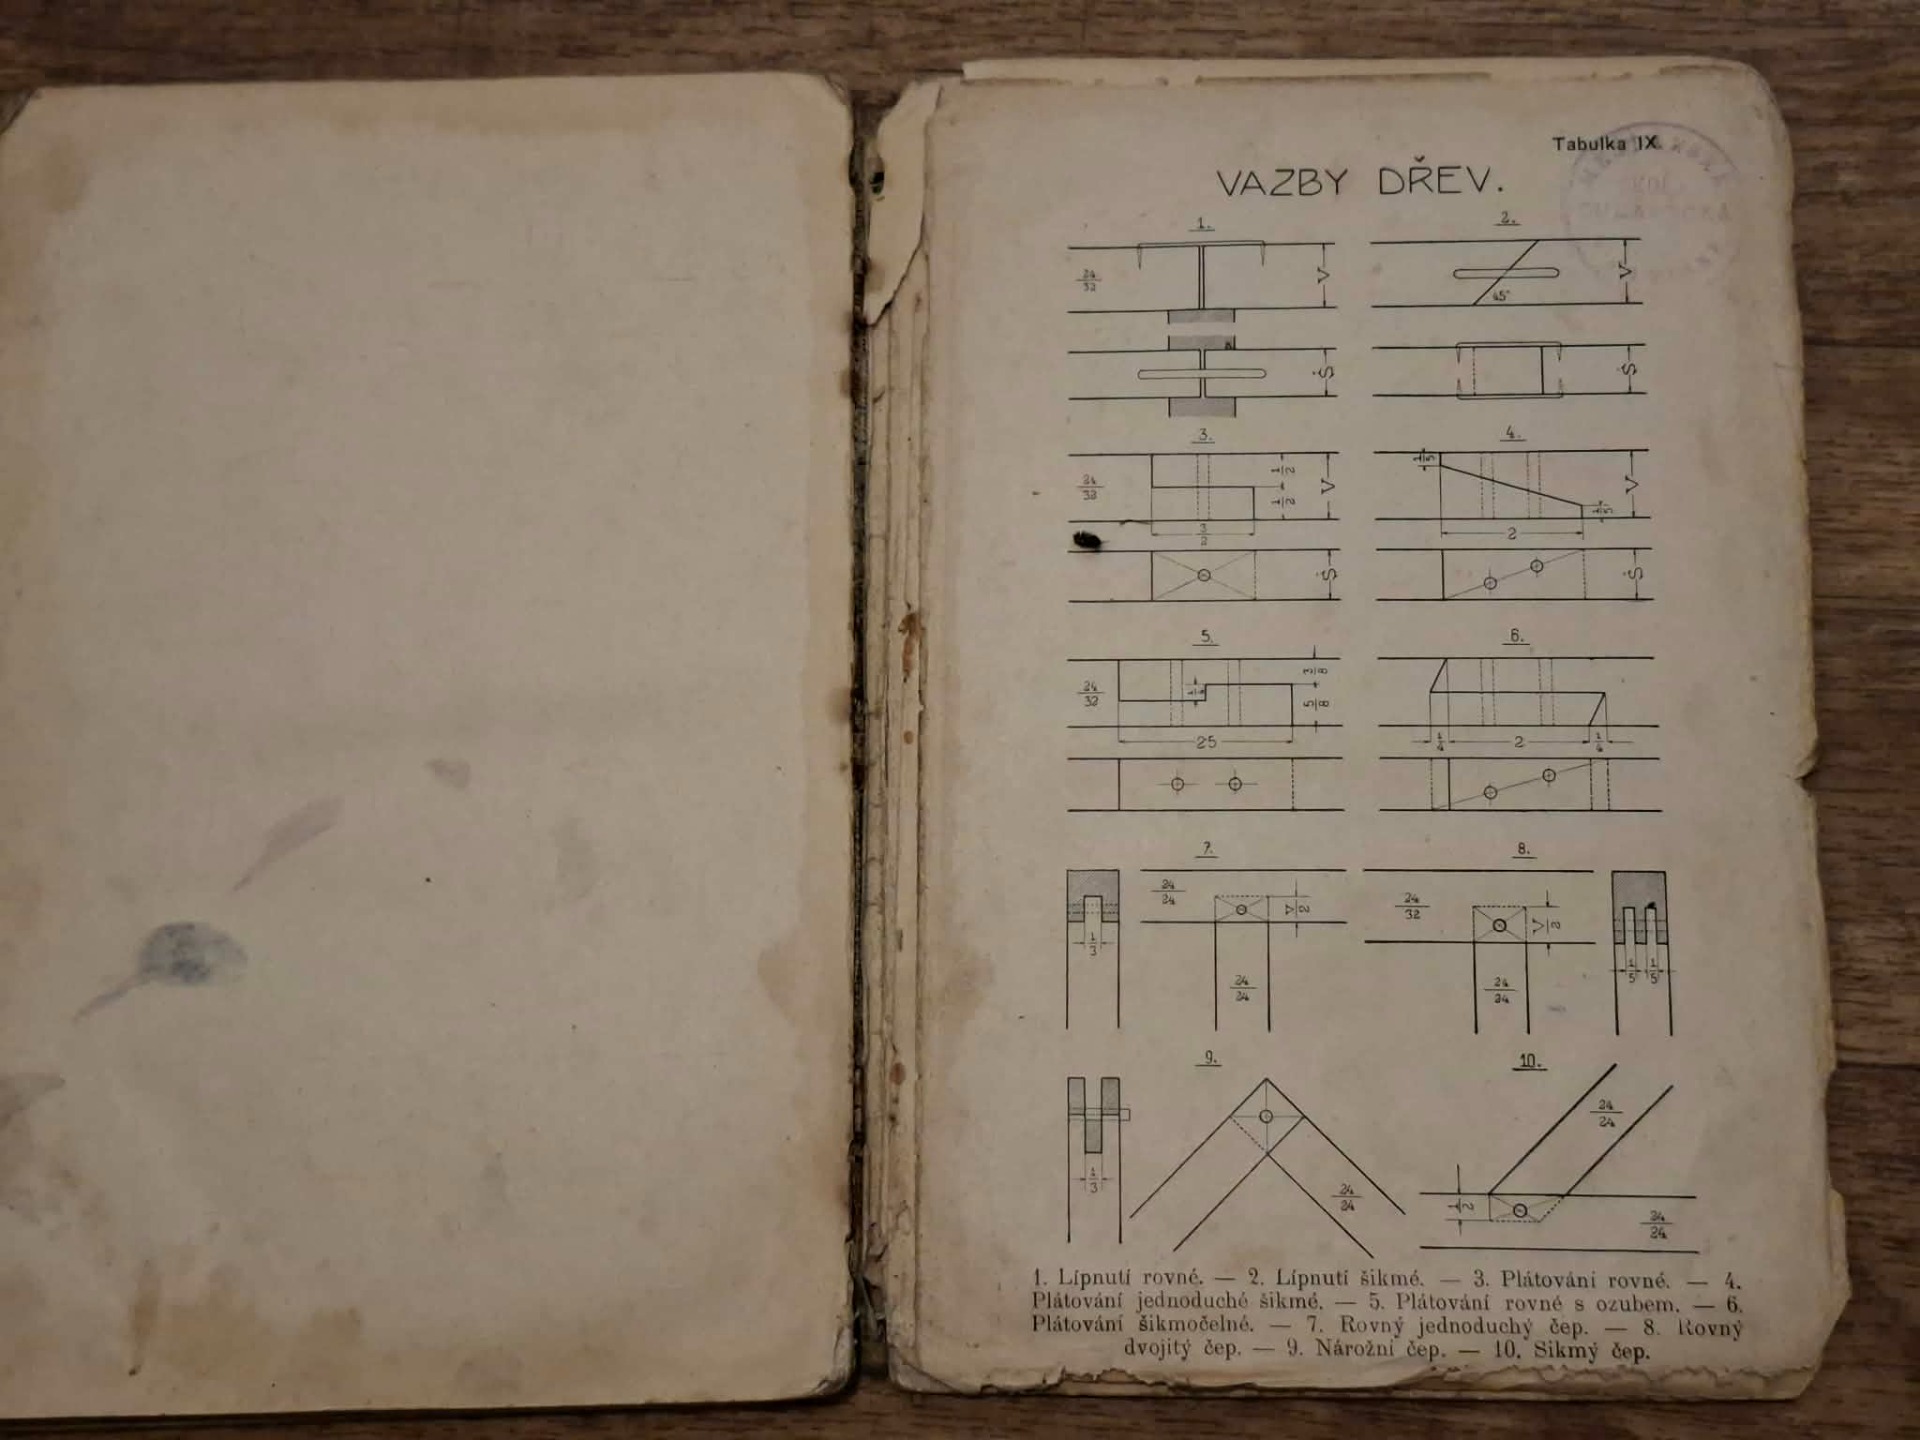 Tabulka IX.
VAZBY DŘEV.
1.
2.
24/32
V
45°
V
Š
Š
3.
4.
24/32
1/2
1/2
V
1/5
1/5
V
3/2
2
Š
Š
5.
6.
24/32
3/8
5/8
25
1/4
2
1/4
7.
8.
24/24
V/2
24/32
V/2
1/3
24/24
24/24
1/5
1/5
9.
10.
24/24
1/3
24/24
1/2
24/24
1. Lípnutí rovné. — 2. Lípnutí šikmé. — 3. Plátování rovné. — 4.
Plátování jednoduché šikmé. — 5. Plátování rovné s ozubem. — 6.
Plátování šikmočelné. — 7. Rovný jednoduchý čep. — 8. Rovný
dvojitý čep. — 9. Nárožní čep. — 10. Sikmý čep.